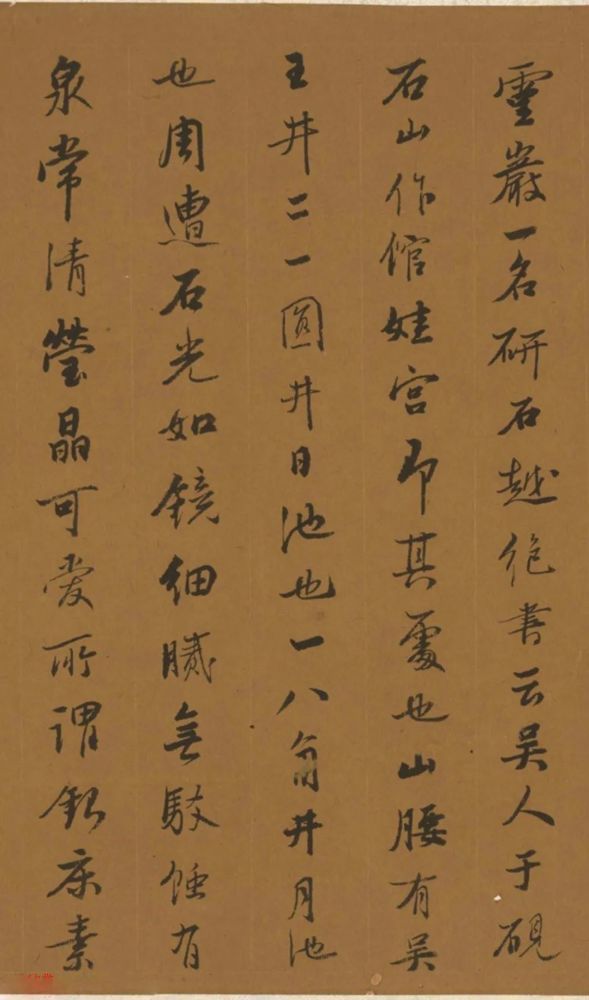 靈巖一名研石越绝書云吴人于硯
石山作倌娃宫即其處也山腰有吴
王井二一圓井日池也一八角井月池
也周遭石光如鏡细膩無駁蝕有
泉常清瑩晶可愛所謂銀床素